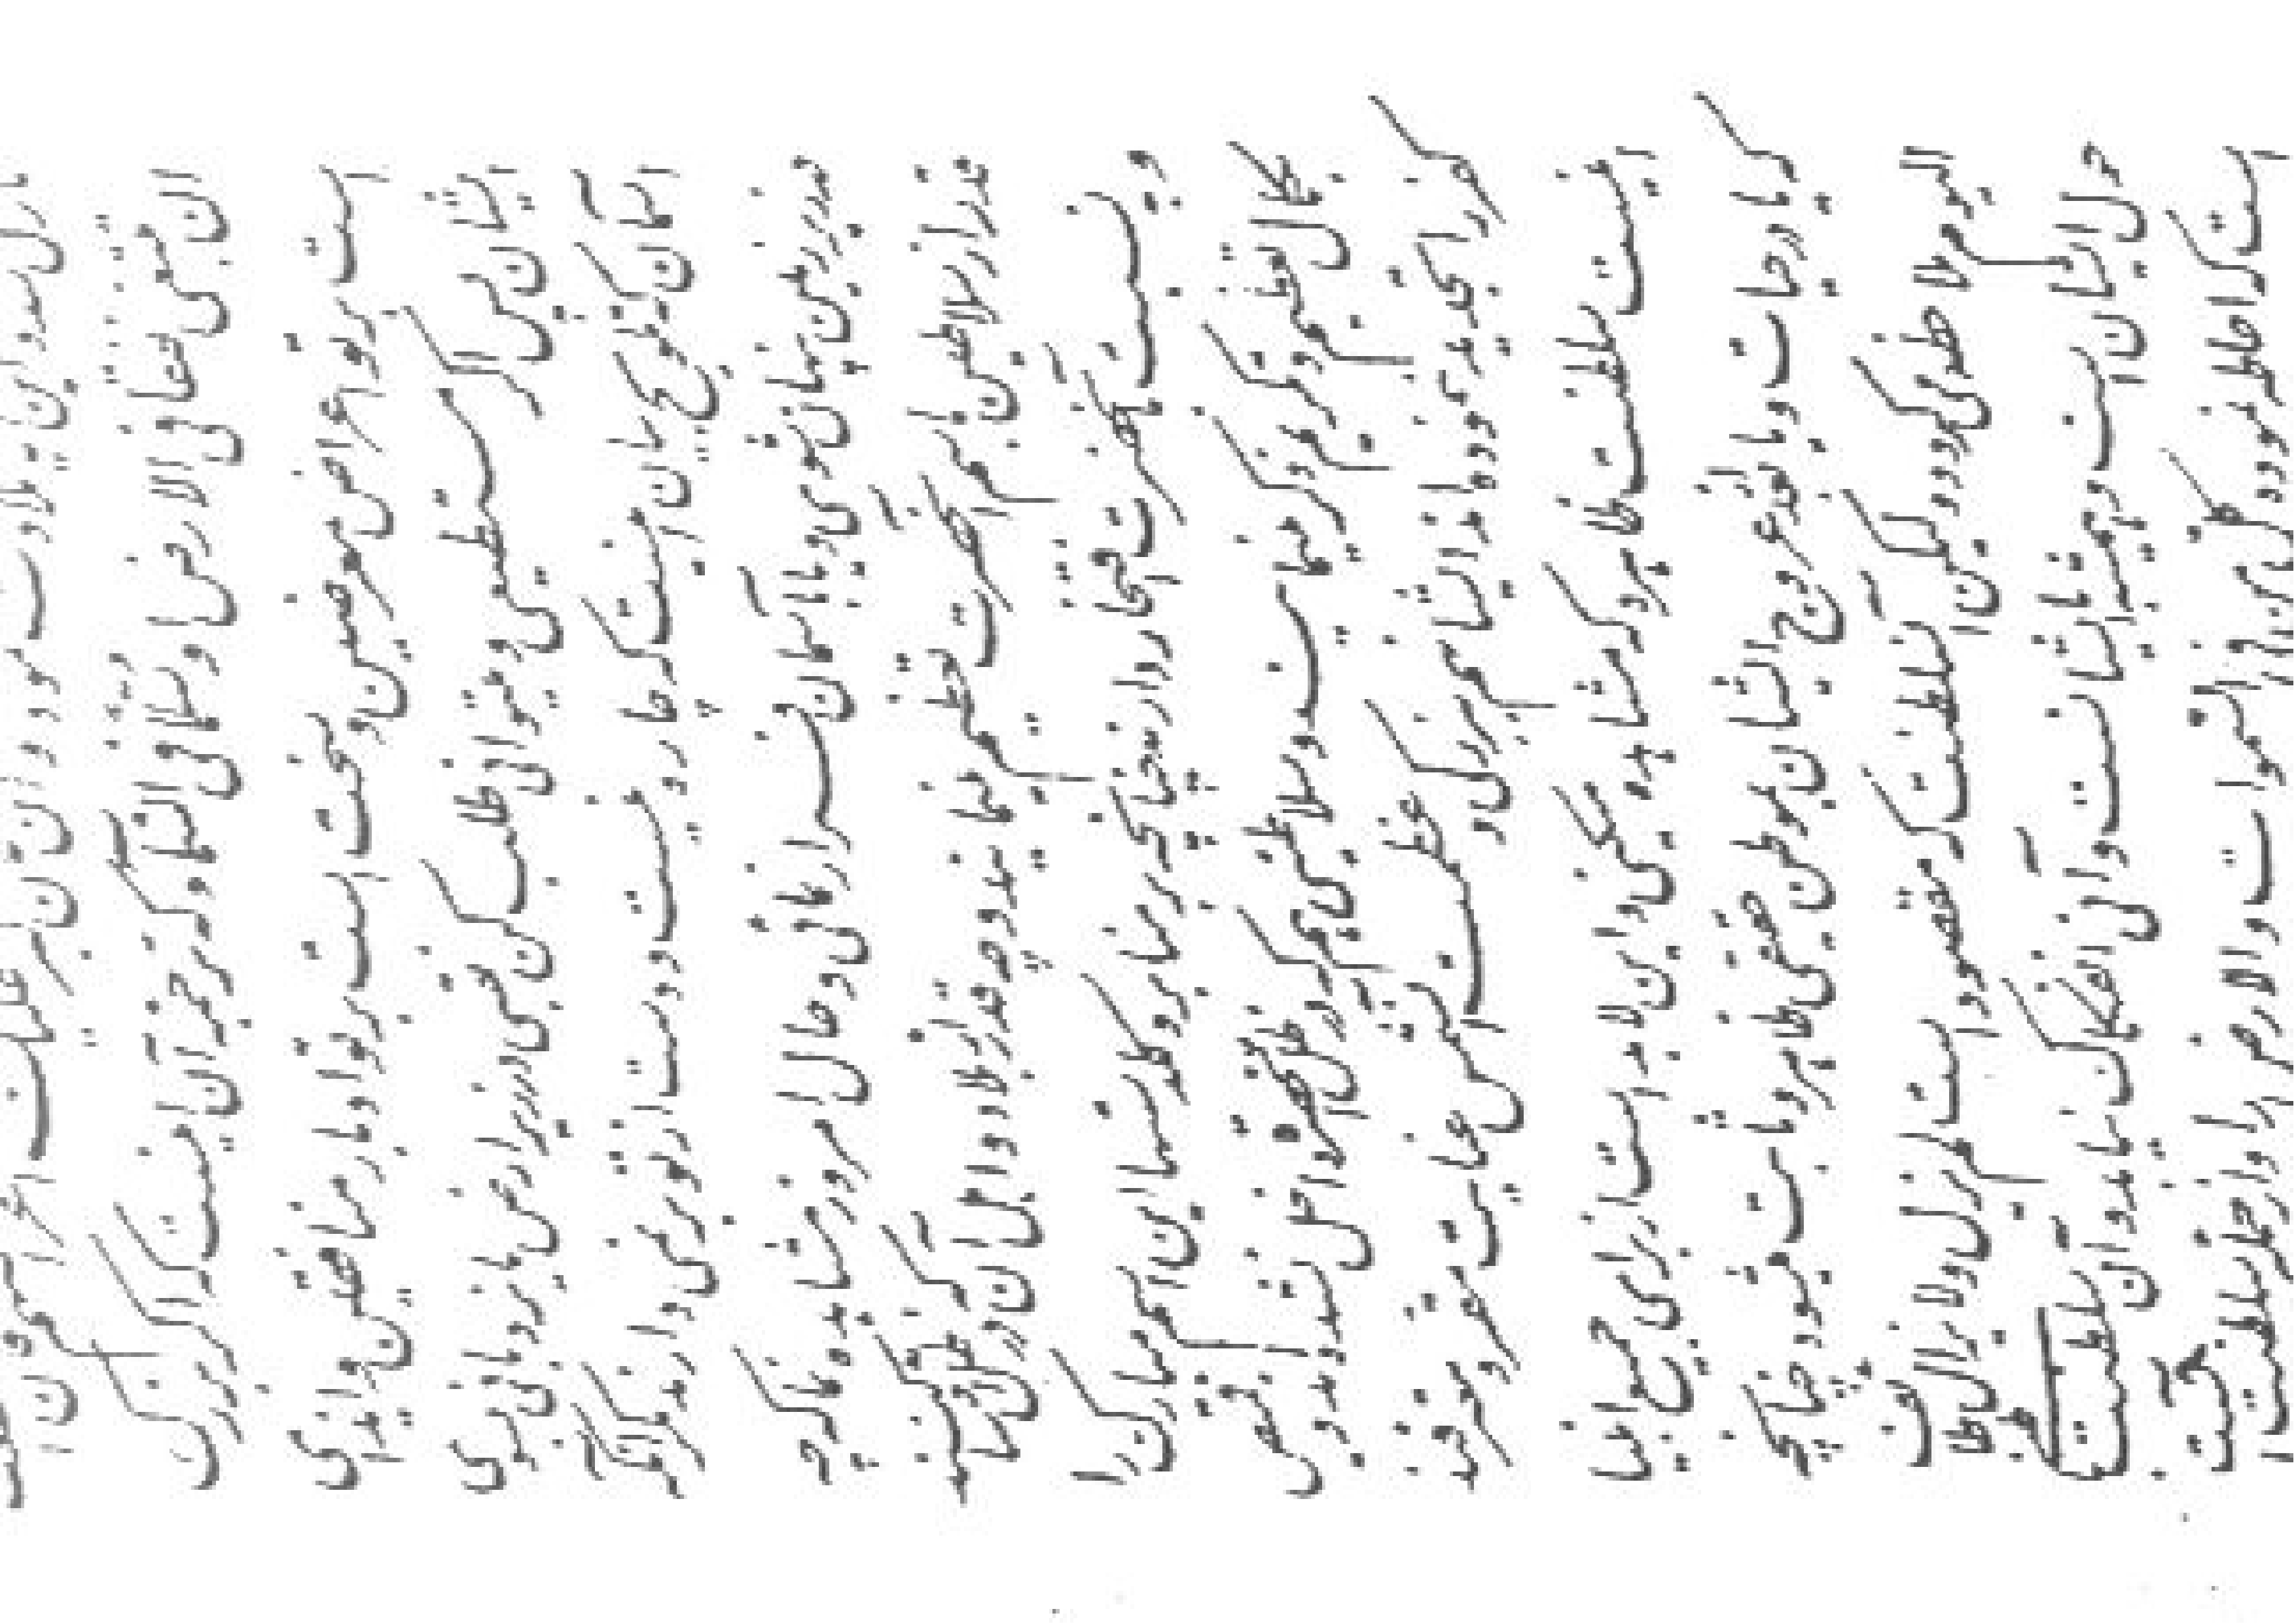 نازل شد و این آیه تلاوت نمود و ان کان کبر علیک اعراضهم فان استطعت
ان تبتغی نفقا فی الارض او سلما فی السماء که ترجمه آن اینست که اگر بزرگ
است بر تو اعراض معرضین و سخت است بر تو ادبار منافقین و ایذای
ایشان پس اگر مستطیعی و میتوانی طلب کن نقبی در زیر ارض یا نردبانی بسوی
آسمان که تلویح بیان اینست که چاره نیست و دست از تو بر نمی دارند مگر آنکه
در زیر زمین پنهان شوی و یا بآسمان فرار نمائی و حال امروز مشاهده نما که چه
قدر از سلاطین باسم آنحضرت تعظیم مینمایند و چه قدر از بلاد و اهل آن که در ظل او ساکنند
و بنسبت بآنحضرت افتخار دارند چنانچه بر منابر و گلدستها این اسم مبارک را
بکمال تعظیم و تکریم ذکر مینمایند و سلاطینی هم که در ظل آنحضرت داخل نشده اند و قمیص
کفر را تجدید ننموده اند ایشان هم ببزرگی و عظمت آن شمس عنایت مقر و معترفند
اینست سلطنت ظاهره که مشاهده میکنی و این لابد است از برای جمیع انبیا
که یا در حیات و یا بعد از عروج ایشان بموطن حقیقی ظاهر و ثابت میشود چنانچه
الیوم ملاحظه میگردد و لیکن آن سلطنت که مقصود است لم یزل و لا یزال طائف
حول ایشان است و همیشه با ایشانست و آنی انفکاک نیابد و آن سلطنت باطنیه
است که احاطه نموده کل من فی السموات و الارض را و از جمله سلطنت